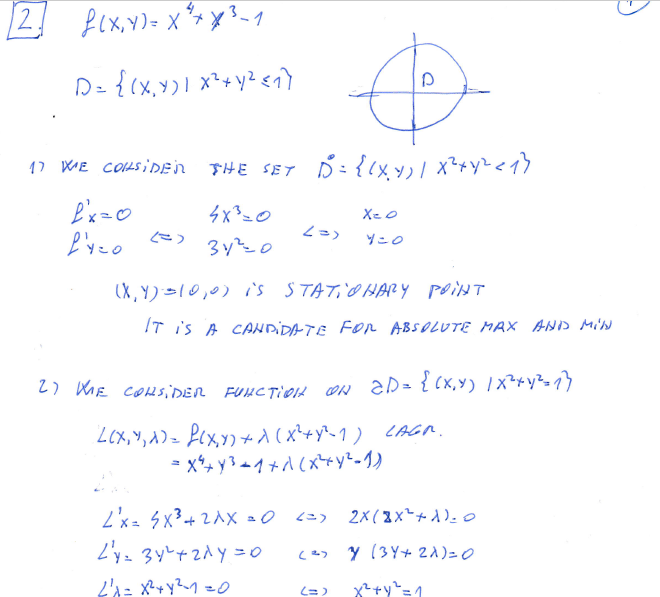 2.
f(x,y)= x⁴+ y³-1
D= {(x,y) | x²+y² ≤1}
D
1) WE CONSIDER THE SET D̊= {(x,y) | x²+y² <1}
f'x=0 <=> 4x³=0 <=> x=0
f'y=0 3y²=0 y=0
(x,y)=(0,0) is STATIONARY POINT
IT iS A CANDIDATE FOR ABSOLUTE MAX AND MIN
2) WE CONSIDER FUNCTION ON ∂D= {(x,y) | x²+y²=1}
L(x,y,λ)= f(x,y)+λ(x²+y²-1) LAGR.
= x⁴+y³-1+λ(x²+y²-1)
L'x= 4x³+2λx =0 <=> 2x(2x²+λ)=0
L'y= 3y²+2λy=0 <=> y (3y+2λ)=0
L'λ= x²+y²-1=0 <=> x²+y²=1